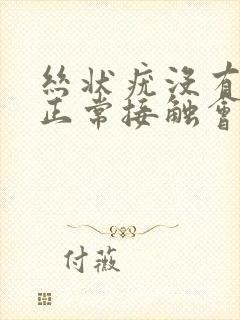 丝状疣没有
正常接触會
付薇